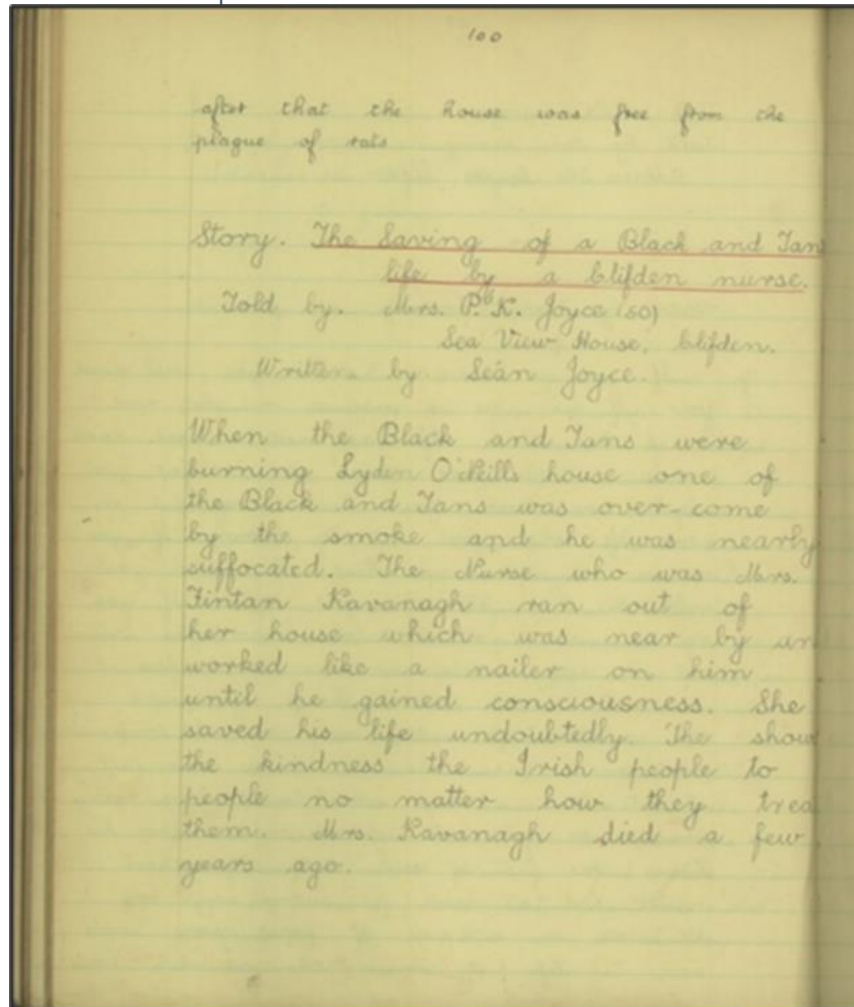 100
after that the house was free from the
plague of rats
Story. The Saving of a Black and Tans
life by a Clifden nurse.
Told by. Mrs. P. K. Joyce (50)
Sea View House, Clifden.
Written by Seán Joyce.
When the Black and Tans were
burning Lyden O'Neills house one of
the Black and Tans was over-come
by the smoke and he was nearly
suffocated. The Nurse who was Mrs.
Fintan Kavanagh ran out of
her house which was near by an
worked like a nailer on him
until he gained consciousness. She
saved his life undoubtedly. The show
the kindness the Irish people to
people no matter how they trea
them. Mrs. Kavanagh died a few
years ago.